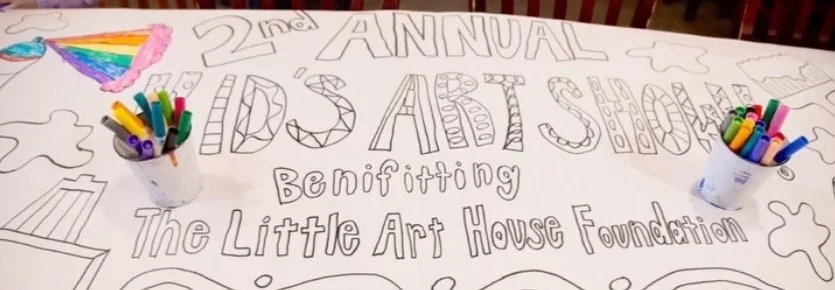 2nd ANNUAL
KID'S ART SHOW!
Benifitting
The Little Art House Foundation